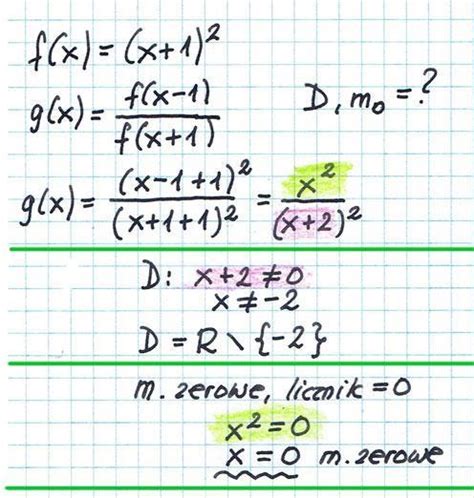 f(x) = (x+1)²
g(x) = f(x-1) / f(x+1) D, m₀ = ?
g(x) = (x-1+1)² / (x+1+1)² = x² / (x+2)²
D: x+2 ≠ 0
x ≠ -2
D = R \ {-2}
m. zerowe, licznik = 0
x² = 0
x = 0 m. zerowe